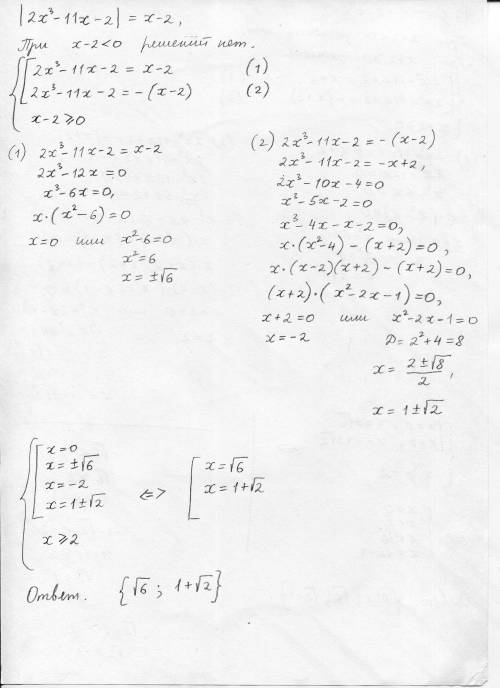 |2x³-11x-2| = x-2,
При x-2<0 решений нет.
2x³-11x-2 = x-2 (1)
2x³-11x-2 = -(x-2) (2)
x-2⩾0
(1) 2x³-11x-2 = x-2
2x³-12x = 0
x³-6x=0,
x·(x²-6)=0
x=0 или x²-6=0
x²=6
x = ±√6
(2) 2x³-11x-2 = -(x-2)
2x³-11x-2 = -x+2,
2x³-10x-4=0
x³-5x-2=0
x³-4x-x-2=0,
x·(x²-4) - (x+2) = 0,
x·(x-2)(x+2) - (x+2)=0,
(x+2)·(x²-2x-1)=0,
x+2=0 или x²-2x-1=0
x=-2 D=2²+4=8
x = (2±√8)/2,
x = 1±√2
x=0
x=±√6
x=-2
x=1±√2
x⩾2
<=>
x=√6
x=1+√2
Ответ. {√6 ; 1+√2}